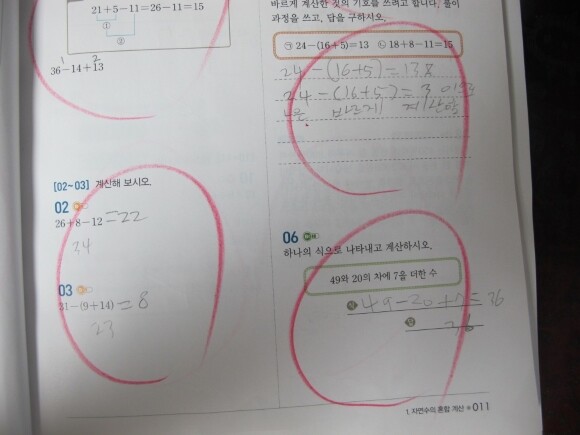 21+5-11=26-11=15
①
②
36-14+13
1 2
[02~03] 계산해 보시오.
02
26+8-12=22
34
03
31-(9+14)=8
23
바르게 계산한 것의 기호를 쓰려고 합니다. 풀이
과정을 쓰고, 답을 구하시오.
㉠ 24-(16+5)=13 ㉡ 18+8-11=15
24-(16+5)=13
24-(16+5)=3 이므로
바르게 계산한
06
하나의 식으로 나타내고 계산하시오.
49와 20의 차에 7을 더한 수
식 49-20+7=36
답 36
1. 자연수의 혼합 계산 011